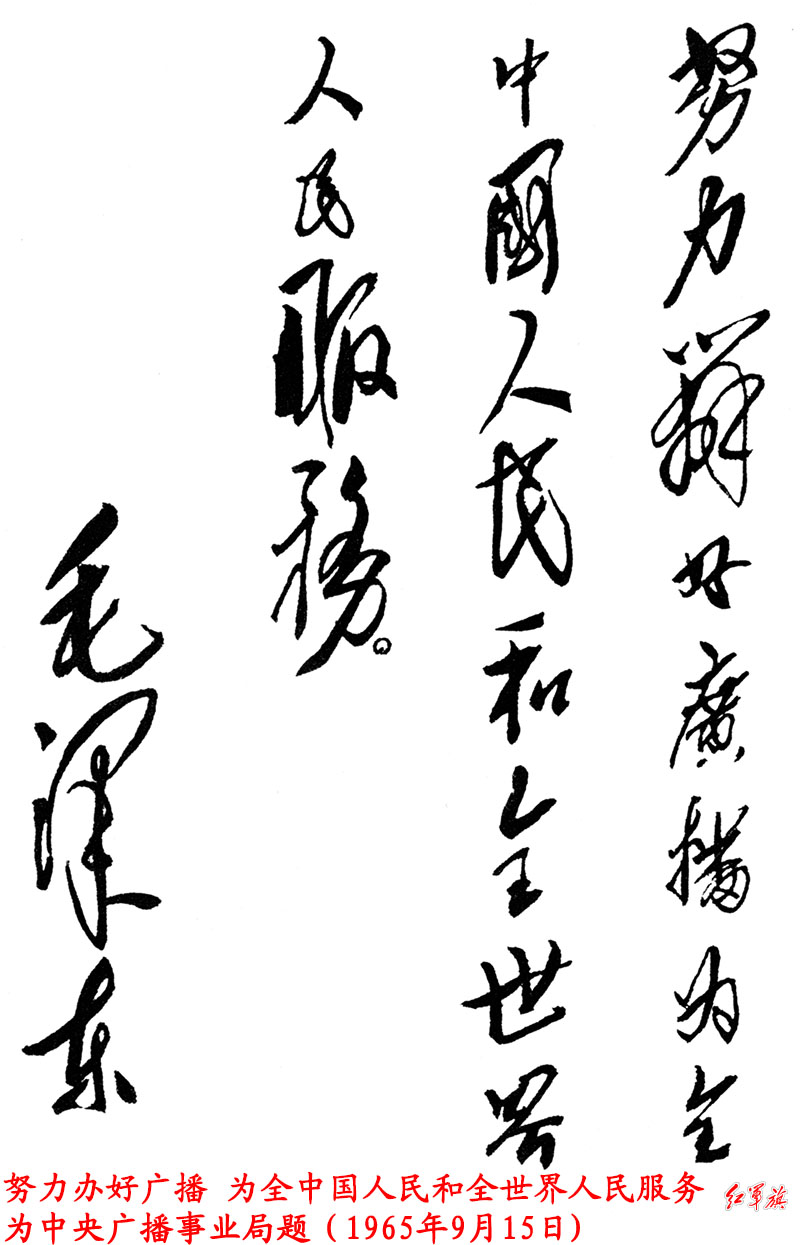 努力辦好廣播为全
中國人民和全世界
人民服務。
毛泽东
努力办好广播 为全中国人民和全世界人民服务
为中央广播事业局题（1965年9月15日）
红军旗